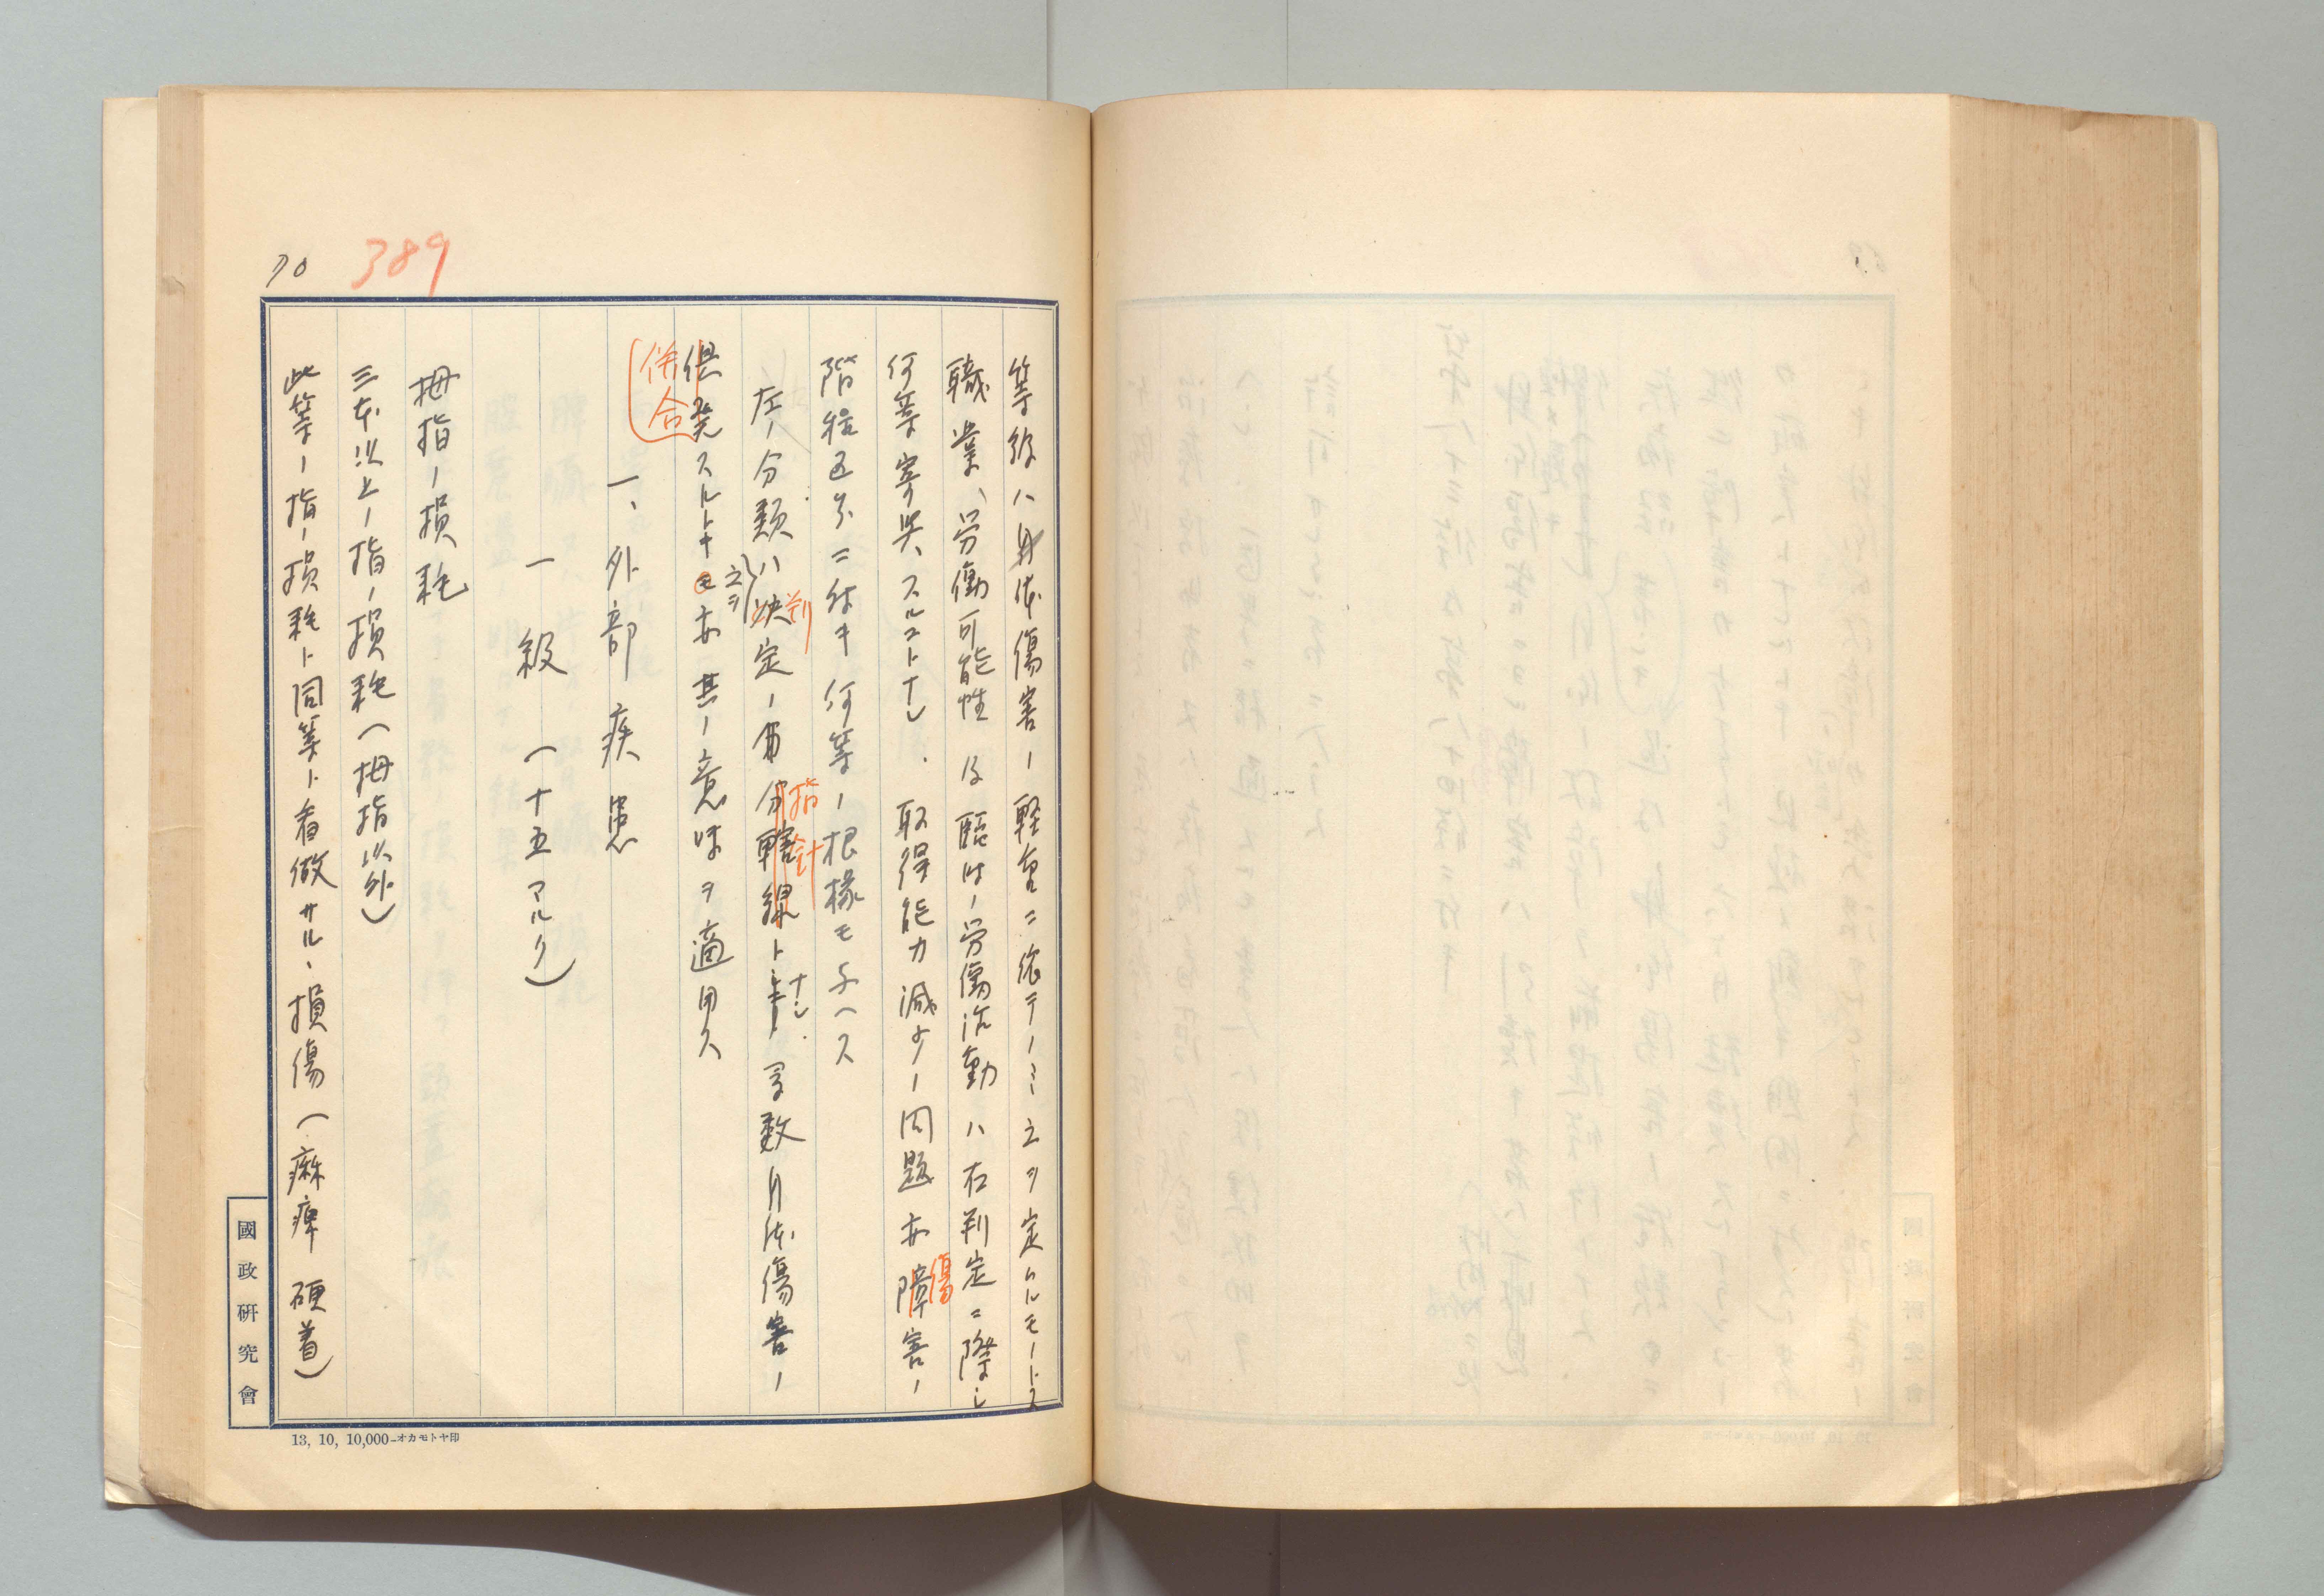 70
389
等級ハ身体傷害ノ軽重ニ依テノミ之ヲ定ムルモノトス
職業、労働可能性及臨時ノ労働活動ハ右判定ニ際シ
何等寄與スルコトナシ.取得能力減少ノ問題亦障害ノ
傷
階級区分ニ付キ何等ノ根據モ与ヘス
左ノ分類ハ決定ノ為 分轄線トナシ.
判
指針
数身体傷害ノ
倶発スルトキモ亦其ノ意味ヲ適用ス
之ヲ
併合
一、外部疾患
一級(十五マルク)
拇指ノ損耗
三本以上ノ指ノ損耗(拇指以外)
此等ノ指ノ損耗ト同等ト看做サル、損傷(痲痺 硬着)
國政研究會
13, 10, 10,000—オカモトヤ印